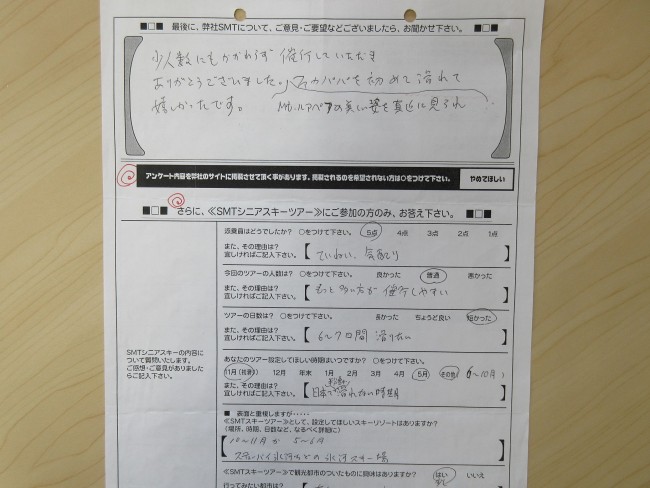 ■□■ 最後に、弊社SMTについて、ご意見・ご要望などございましたら、お聞かせ下さい。 ■□■
少人数にもかかわらず 催行していただき
ありがとうございました。 を初めて滑れて
嬉しかったです。 の美しい姿を真近に見られ
アンケート内容を弊社のサイトに掲載させて頂く事があります。掲載されるのを希望されない方は○をつけて下さい。 やめてほしい
■□■ さらに、≪SMTシニアスキーツアー≫にご参加の方のみ、お答え下さい。 ■□■
添乗員はどうでしたか? ○をつけて下さい。 5点 4点 3点 2点 1点
また、その理由は?
宜しければご記入下さい。 【 ていねい、気配り 】
今回のツアーの人数は? ○をつけて下さい。 良かった 普通 悪かった
また、その理由は?
宜しければご記入下さい。 【 もっと多い方が催行しやすい 】
ツアーの日数は? ○をつけて下さい。 長かった ちょうど良い 短かった
また、その理由は?
宜しければご記入下さい。 【 6〜7日間 滑りたい 】
SMTシニアスキーの内容に
ついて質問いたします。
ご感想・ご意見がありました
らご記入下さい。
あなたのツアー設定してほしい時期はいつですか? ○をつけて下さい。
11月 12月 年末 1月 2月 3月 4月 5月 その他 (6〜10月)
また、その理由は?
宜しければご記入下さい。 【 日本で滑れない時期 】
■ 表面と重複しますが・・・・・
≪SMTスキーツアー≫として、設定してほしいスキーリゾートはありますか?
(場所、時期、日数など、なるべく詳細に)
10〜11月か 5〜6月
氷河などの氷河スキー場
≪SMTスキーツアー≫で観光都市のついたものに興味はありますか? はい いいえ
行ってみたい都市は?